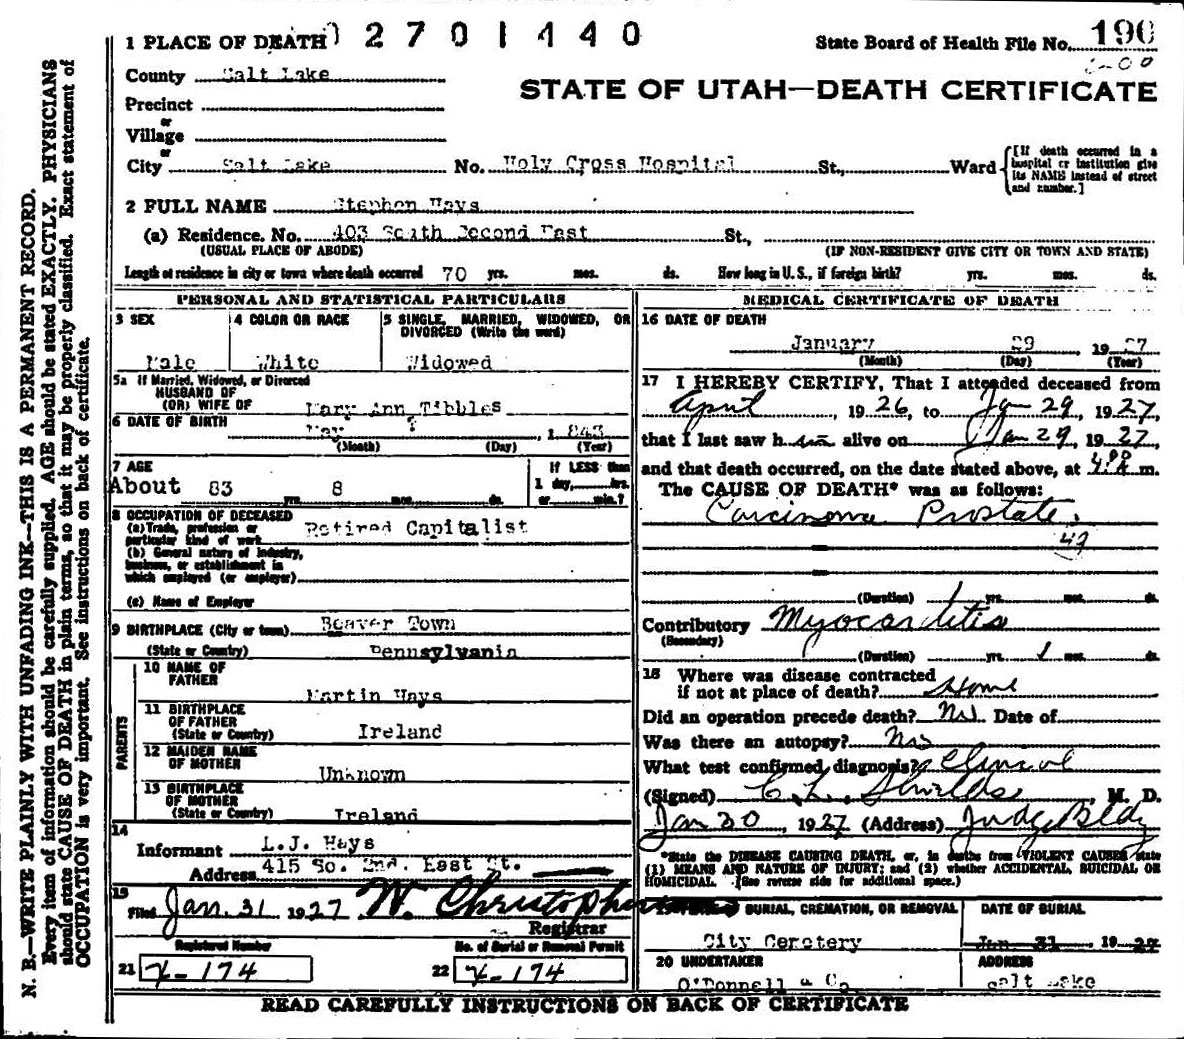 1 PLACE OF DEATH 2701440
State Board of Health File No. 190
County Salt Lake
STATE OF UTAH—DEATH CERTIFICATE
Precinct
or
Village
or
City Salt Lake No. Holy Cross Hospital St., Ward
[If death occurred in a
hospital or institution give
its NAME instead of street
and number.]
2 FULL NAME Stephen Hays
(a) Residence. No. 403 South Second East St.,
(USUAL PLACE OF ABODE) (IF NON-RESIDENT GIVE CITY OR TOWN AND STATE)
Length of residence in city or town where death occurred 70 yrs. mos. ds. How long in U. S., if foreign birth? yrs. mos. ds.
PERSONAL AND STATISTICAL PARTICULARS
3 SEX
Male
4 COLOR OR RACE
White
5 SINGLE, MARRIED, WIDOWED, OR
DIVORCED (Write the word)
Widowed
5a If Married, Widowed, or Divorced
HUSBAND OF
(OR) WIFE OF Mary Ann Tibbles
6 DATE OF BIRTH May ? 1 843
(Month) (Day) (Year)
7 AGE
About 83 yrs. 8 mos. ds.
If LESS than
1 day, hrs.
or min.?
8 OCCUPATION OF DECEASED
(a) Trade, profession or
particular kind of work Retired Capitalist
(b) General nature of industry,
business, or establishment in
which employed (or employer)
(c) Name of Employer
9 BIRTHPLACE (City or town) Beaver Town
(State or Country) Pennsylvania
PARENTS
10 NAME OF
FATHER
Martin Hays
11 BIRTHPLACE
OF FATHER
(State or Country) Ireland
12 MAIDEN NAME
OF MOTHER
Unknown
13 BIRTHPLACE
OF MOTHER
(State or Country) Ireland
14
Informant L.J. Hays
Address 415 So. 2nd. East St.
15
Filed Jan. 31 1927 W. Christopherson
Registrar
Registered Number
No. of Burial or Removal Permit
21 X-174 22 X-174
MEDICAL CERTIFICATE OF DEATH
16 DATE OF DEATH
January 29, 19 27
(Month) (Day) (Year)
17 I HEREBY CERTIFY, That I attended deceased from
April, 19 26, to Jan 29, 19 27,
that I last saw h im alive on Jan 29, 19 27,
and that death occurred, on the date stated above, at m.
The CAUSE OF DEATH* was as follows:
Carcinoma Prostate.
49
(Duration) 1 yrs. mos. ds.
Contributory Myocarditis
(Secondary)
(Duration) yrs. 1 mos. ds.
18 Where was disease contracted
if not at place of death? Home
Did an operation precede death? No Date of
Was there an autopsy? No
What test confirmed diagnosis? Clinical
(Signed) C. L. Shields, M. D.
Jan 30, 1927 (Address) Judge Bldg
*State the DISEASE CAUSING DEATH, or, in deaths from VIOLENT CAUSES state
(1) MEANS AND NATURE OF INJURY; and (2) whether ACCIDENTAL, SUICIDAL OR
HOMICIDAL. (See reverse side for additional space.)
BURIAL, CREMATION, OR REMOVAL
City Cemetery
DATE OF BURIAL
Jan 31 19 27
20 UNDERTAKER
O'Donnell & Co
ADDRESS
Salt Lake
READ CAREFULLY INSTRUCTIONS ON BACK OF CERTIFICATE
N. B.—WRITE PLAINLY WITH UNFADING INK—THIS IS A PERMANENT RECORD.
Every item of information should be carefully supplied. AGE should be stated EXACTLY. PHYSICIANS
should state CAUSE OF DEATH in plain terms, so that it may be properly classified. Exact statement of
OCCUPATION is very important. See instructions on back of certificate.